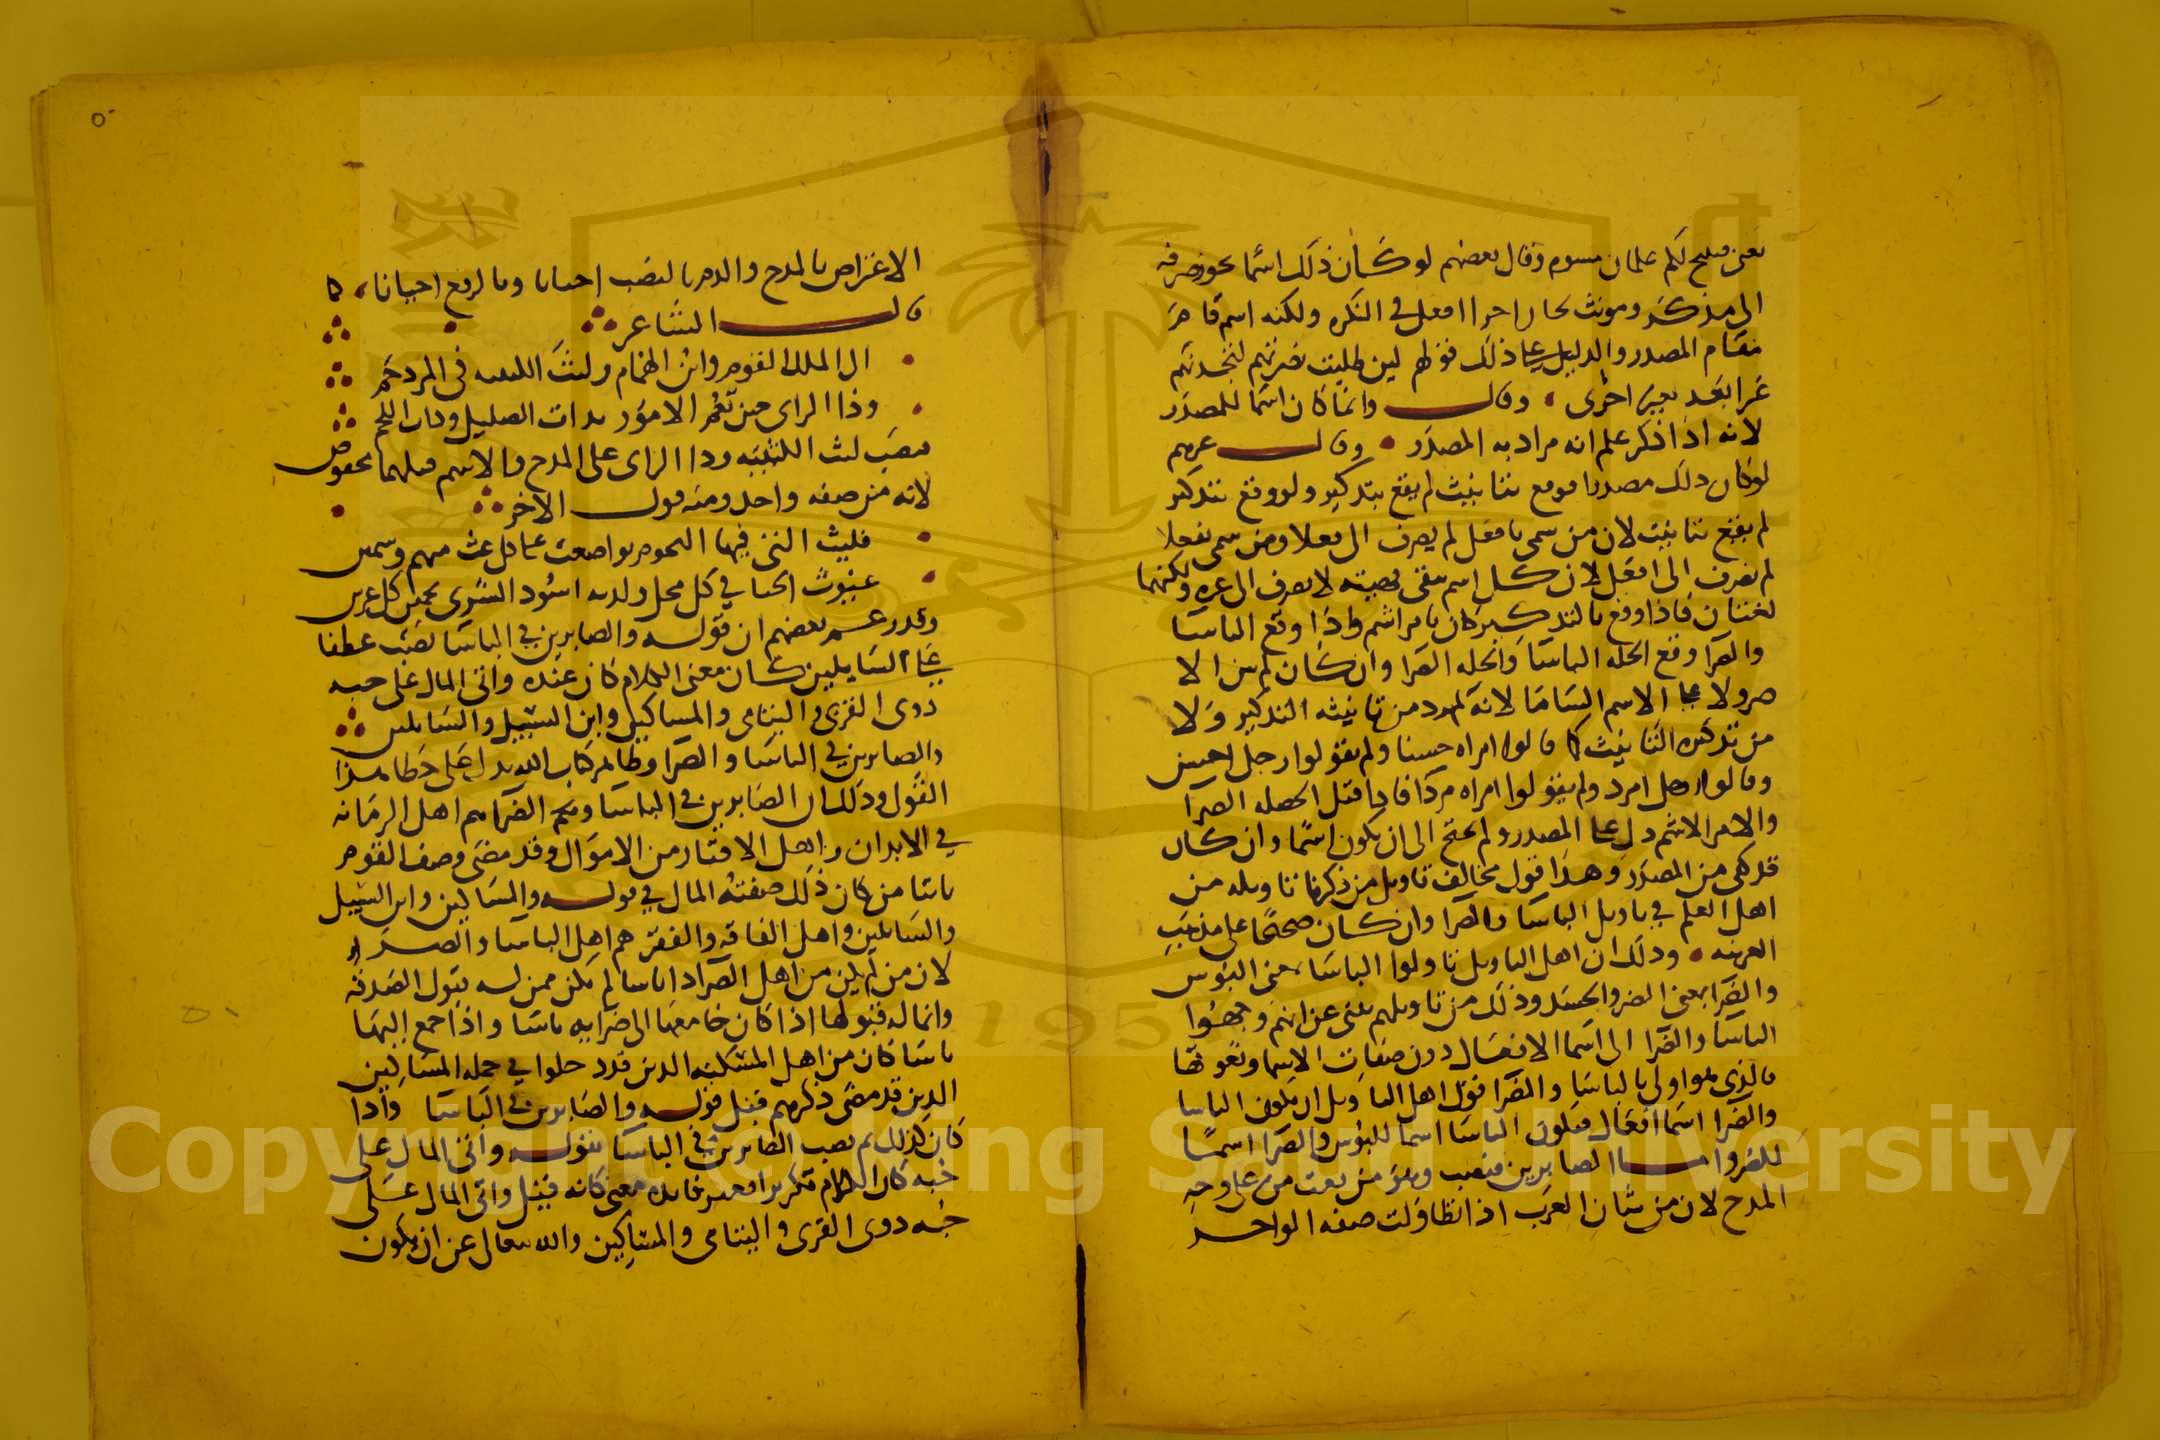 يعني فينتج لكم غلمان مشوم وقال بعضهم لو كان ذلك اسما يجوز صرفه
الى مذكر ومونث لجاز اجرا افعل في النكره ولكنه اسم قام
مقام المصدر والدليل على ذلك قولهم لين طلبت نصرتهم لتجدنهم
غير ابعد بغير اخرى وقال وانما كان اسما للمصدر
لانه اذا ذكر علم انه مراد به المصدر وقال غيرهم
لو كان ذلك مصدرا فوقع بتانيث لم يقع بتذكير ولو وقع بتذكير
لم يقع بتانيث لان من سمي بافعل لم يصرف الى فعلا ومن سمي بفعلا
لم يصرف الى افعل لان كل اسم يبقى بهيئته لا يصرف الى غيره ولكنهما
لغتان فاذا وقع بالتذكير كان بامر اشم واذا وقع الباسا
والضرا وقع الخله الباسا والخله الضرا وان كان لم يبن الا
ضر ولا على الاسم الشاما لانه لم يرد من تانيثه التذكير ولا
من تذكيره التانيث كما قالوا امراه حسنا ولم يقولوا رجل احسن
وقالوا رجل امرد ولم يقولوا امراه مردا فاذا قيل الخصله الضرا
والامر الاشم دل على المصدر ولم يحتج الى ان يكون اسما وان كان
قد كفى من المصدر وهذا قول مخالف تاويل من ذكرنا تاويله من
اهل العلم في تاويل الباسا والضرا وان كان صحيحا على مذهب
العربيه وذلك ان اهل التاويل تاولوا الباسا بمعنى البوس
والضرا بمعنى الضر والجسد وذلك من تاويلهم ينبي عن انهم وجهوا
الباسا والضرا الى اسما الافعال دون صفات الاسما ونعوتها
فالذي هو اولى بالباسا والضرا قول اهل التاويل ان يكون الباسا
والضرا اسما افعال فيكون الباسا اسما للبوس والضرا اسما
للضر واما الصابرين فنصب وهو من نعت من على وجه
المدح لان من شان العرب اذا تطاولت صفه الواحد
الاعتراض بالمدح والذم بالنصب احيانا وبالرفع احيانا كما
قال الشاعر
الى الملك القوم وابن الهمام وليث الكتيبه في المزدحم
وذا الراي حين تغم الامور بذات الصليل وذات اللجم
فنصب ليث الكتيبه وذا الراي على المدح والاسم قبلهما مخفوض
لانه من صفه واحد ومنه قول الاخر
فليت التي فيها النجوم تواضعت على كل غث منهم وسمين
غيوث الحيا في كل محل ولزبه اسود الشرى يحمين كل عرين
وقد زعم بعضهم ان قوله والصابرين في الباسا نصب عطفا
على السايلين كان معنى الكلام كان عنده واتى المال على حبه
ذوى القربى واليتامى والمساكين وابن السبيل والسايلين
والصابرين في الباسا والضرا وظاهر كتاب الله يدل على خطا هذا
القول وذلك ان الصابرين في الباسا والضرا هم اهل الزمانه
في الابدان واهل الاقتار من الاموال وقد مضى وصف القوم
بايتا من كان ذلك صفته المال في قوله والمساكين وابن السبيل
والسايلين واهل الفاقه والفقر هم اهل الباسا والضرا
لان من لم يكن من اهل الضرا ذا باسا لم يكن ممن له قبول الصدقه
وانما له قبولها اذا كان جامعا الى ضرايه باسا واذا جمع اليها
باسا كان من اهل المسكنه الذين قد دخلوا في جمله المساكين
الذين قد مضى ذكرهم قبل قوله والصابرين في الباسا واذا
كان كذلك ثم نصب الصابرين في الباسا بقوله واتى المال على
حبه كان الكلام تكريرا بغير فايده معنى كانه قيل واتى المال على
حبه ذوى القربى واليتامى والمساكين والله تعالى عن ان يكون
Copyright © King Saud University
1957